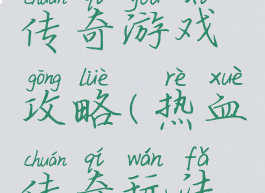 chuán qí yóu xì
传奇游戏
gōng lüè rè xuè
攻略(热血
chuán qí wán fǎ
传奇玩法